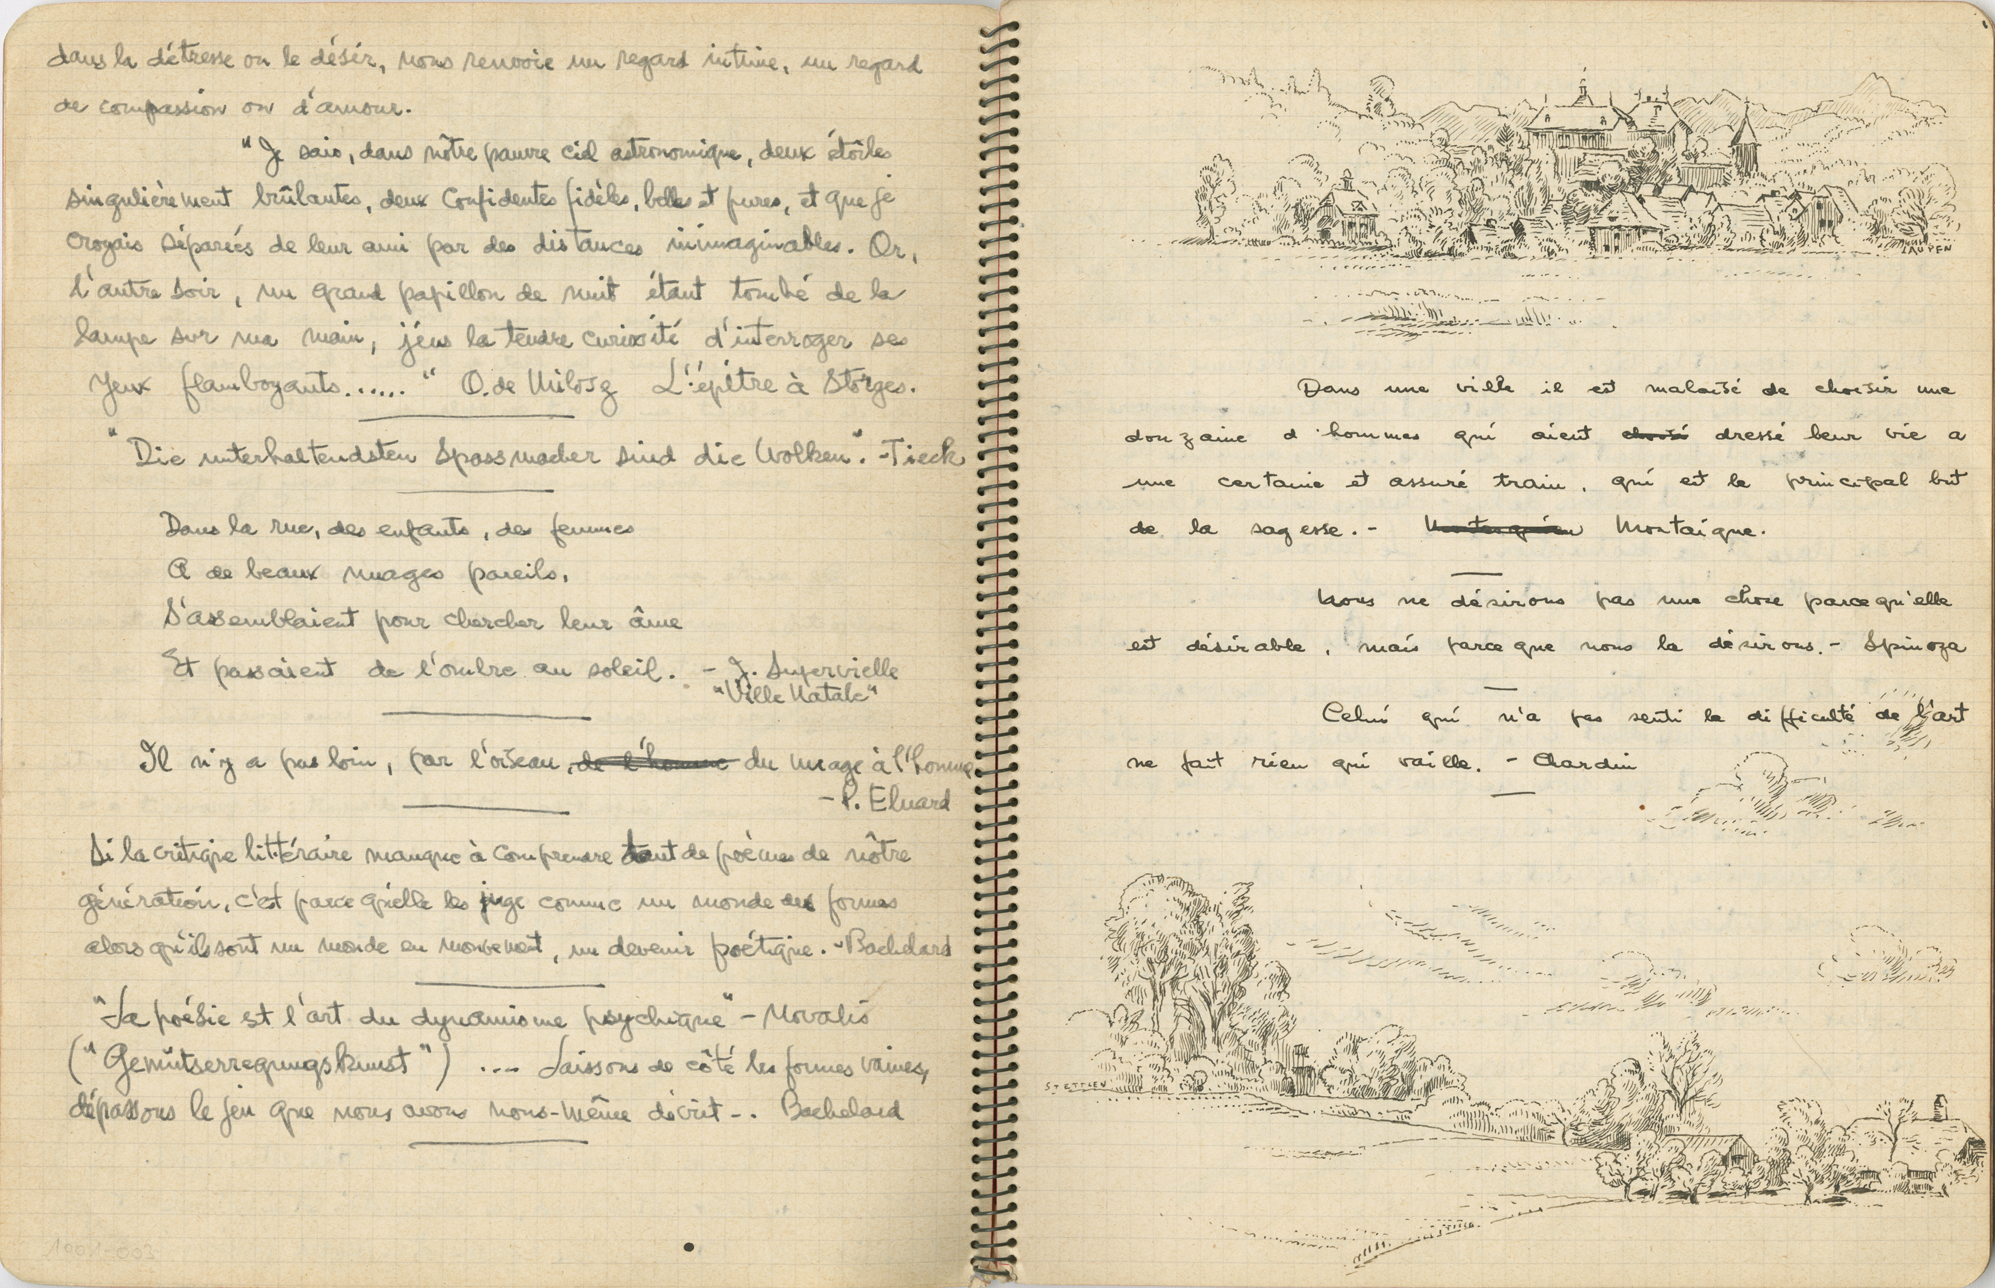 dans la détresse ou le désir, nous renvoie un regard intime, un regard
de compassion ou d'amour.
"Je sais, dans nôtre pauvre ciel astronomique, deux étoiles
singulièrement brûlantes, deux Confidentes fidèles, belles et pures, et que je
croyais séparés de leur ami par des distances inimaginables. Or,
l'autre soir, un grand papillon de nuit étant tombé de la
lampe sur ma main, j'eus la tendre curiosité d'interroger ses
yeux flamboyants......" O. de Milosz L'épître à Storges.
"Die unterhaltendsten Spassmacher sind die Wolken". -Tieck
Dans la rue, des enfants, des femmes
A de beaux nuages pareils,
S'assemblaient pour chercher leur âme
Et passaient de l'ombre au soleil. - J. Supervielle
"Ville Natale"
Il n'y a pas loin, par l'oiseau, de l'homme du nuage à l'homme
- P. Eluard
Si la critique littéraire manque à comprendre tant de poèmes de nôtre
génération, c'est parce qu'elle les juge comme un monde des formes
alors qu'ils sont un monde en mouvement, un devenir poétique. -Bachelard
"La poésie est l'art du dynamisme psychique" - Novalis
("Gemütserregungskunst") .... Laissons de côté les formes vaines,
dépassons le jeu que nous avons nous-même décrit -.. Bachelard
1001-003
LAUPEN
Dans une ville il est malaisé de choisir une
donzaine d'hommes qui aient choisi dressé leur vie a
une certaine et assuré train, qui est le principal but
de la sagesse. - Montesquieu Montaigne.
Nous ne désirons pas une chose parcequ'elle
est désirable, mais parce que nous la désirons. - Spinoza
Celui qui n'a pas senti la difficulté de l'art
ne fait rien qui vaille. - Chardin
STETTLEN